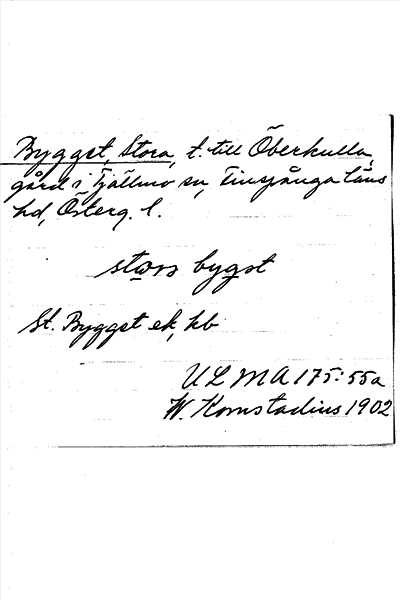 Byggst, Stora, t. till Överkulla,
gård i Tjällmo sn, Finspånga läns
hd, Österg. l.
stora bygst
St. Byggst ek, kb
ULMA 175:55a
W. Komstadius 1902